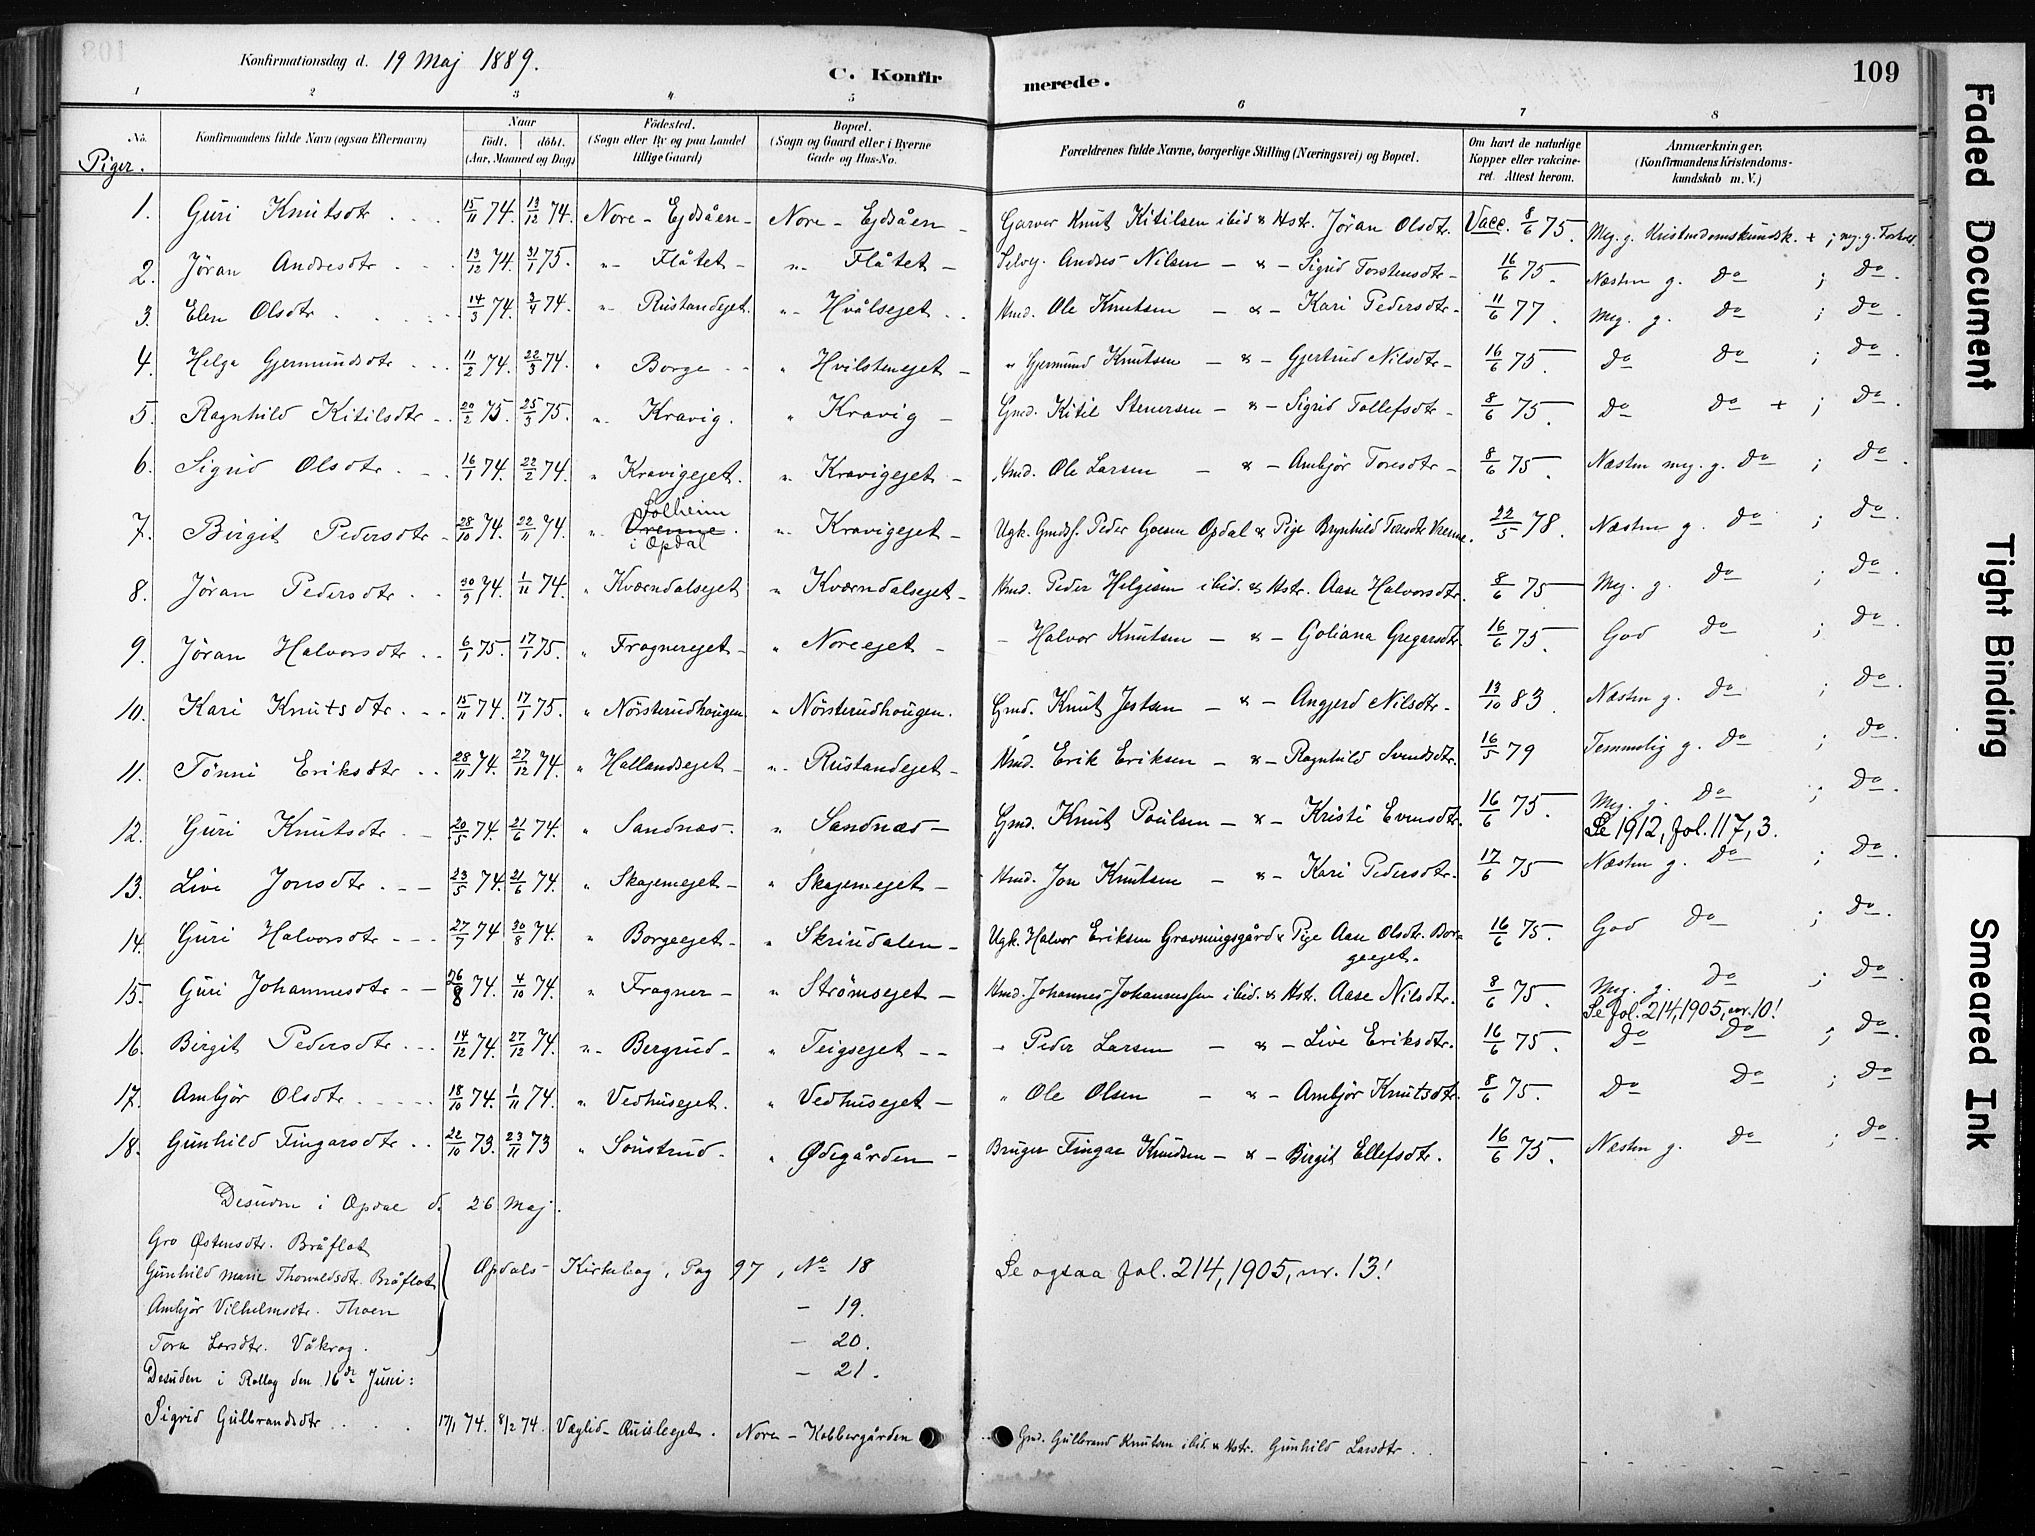 Konfirmationsdag d. 19 Maj 1889.
C. Konfirmerede.
109
1 2 3 4 5 6 7 8
No. Konfirmandens fulde Navn (ogsaa Efternavn) Naar født. døbt. (Aar, Maaned og Dag) Fødested. (Sogn eller By og paa Landet tillige Gaard) Bopæl. (Sogn og Gaard eller i Byerne Gade og Hus-No. Forældrenes fulde Navne, borgerlige Stilling (Næringsvei) og Bopæl. Om havt de naturlige Kopper eller vakcineret. Attest herom. Anmærkninger. (Konfirmandens Kristendomskundskab m. V.)
Piger.
1. Guri Knutsdtr 15/11 74. 13/12 74. Nore - Ejdsåen - Nore - Ejdsåen - Garver Knut Kitilsen ibid & Hstr. Jöran Olsdtr. Vacc. 8/6 75. Meg. g. Kristendomskundsk. + ; mg. g. Forhol.
2. Jöran Andresdtr 13/12 74. 31/1 75. " Flåtet - " Flåtet - Selvej. Andres Nilsen - & - Sigrid Torstensdtr - 16/6 75. Næsten g. Do ; Do.
3. Elen Olsdtr 14/3 74. 3/4 74. " Rustandejet. " Hvålsejet. Hmd. Ole Knutsen - & - Kari Pedersdtr - 11/6 77. Meg. g. Do ; Do.
4. Helga Gjermundsdtr 11/2 74. 22/3 74. " Borge " Hvilstenejet - " Gjermund Knutsen - & - Gjertrud Nilsdtr - 16/6 75. Do Do ; Do.
5. Ragnhild Kitilsdtr 20/2 75. 25/3 75. " Kravig. " Kravig - Gmd. Kitil Stenersen - & - Sigrid Tollefsdtr - 8/6 75 Do Do + ; Do.
6. Sigrid Olsdtr 16/1 74. 22/2 74. " Kravigejet. " Kravigejet - Hmd. Ole Larsen - & - Ambjör Toresdtr - 8/6 75. Næsten meg. g. Do ; Do.
7. Birgit Pedersdtr 28/10 74. 22/11 74. " Solheim Vrenne i Opdal " Kravigejet - Ugk. Gmdsf. Peder Goesen Opdal & Pige Brynhild Toresdtr Vrenne. 22/5 78. Næsten g. Do ; Do.
8. Jöran Pedersdtr 30/9 74. 1/11 74. " Kværndalsejet " Kværndalsejet - Hmd. Peder Helgesen ibid. & Hstr. Aase Halvorsdtr. 8/6 75 Meg. g. Do ; Do.
9. Jöran Halvorsdtr 6/1 75. 17/1 75. " Fragnerejet - " Noreejet - - Halvor Knutsen - & - Goliana Gregarsdtr. 16/6 75. God Do ; Do.
10. Kari Knutsdtr 15/11 74. 17/1 75. " Nörsterudhougen " Nörsterudhougen. Gmd. Knut Jostsen - & - Angjerd Nilsdtr - 13/10 83 Næsten g. Do ; Do.
11. Tönni Eriksdtr 28/11 74. 27/12 74. " Hallandsejet - " Rustandejet - Hmd. Erik Eriksen - & - Ragnhild Svendsdtr. 16/5 79 Temmelig g. Do ; Do.
12. Guri Knutsdtr 20/5 74. 21/6 74. " Sandnæs - " Sandnæs - Gmd. Knut Poulsen - & - Kristi Evensdtr. 16/6 75 Meg. g. Do ; Do.
Se 1912, fol. 117, 3.
13. Live Jonsdtr 23/5 74. 21/6 74. " Skajemejet - " Skajemejet - Hmd. Jon Knutsen - & - Kari Pedersdtr. 17/6 75 Næsten g. Do ; Do.
14. Guri Halvorsdtr 27/7 74. 30/8 74. " Borgeejet - " Skrindalen - Ugk. Halvor Eriksen Gravningsgård & Pige Aase Olsdtr. Borgeejet. 16/6 75. God Do ; Do.
15. Guri Johannesdtr 26/8 74. 4/10 74. " Fragner - " Strömsejet - Hmd. Johannes Johannessen ibid. & Hstr. Aase Nilsdtr. 8/6 75. Meg. g. Do ; Do.
Se fol. 214, 1905, nr. 10!
16. Birgit Pedersdtr 14/12 74. 27/12 74. " Bergrud - " Teigsejet - " Peder Larsen - & - Live Eriksdtr. 16/6 75. Do Do ; Do.
17. Ambjör Olsdtr 18/10 74. 1/11 74. " Vedhusejet. " Vedhusejet - " Ole Olsen - & - Ambjör Knutsdtr. 8/6 75. Do Do ; Do
18. Gunhild Fingarsdtr 22/10 73. 23/11 73 " Sönstrud - " Ødegården - Bruger Fingar Knudsen - & - Birgit Ellefsdtr. 16/6 75. Næsten g. Do ; Do.
Desuden i Opdal d. 26 Maj.
Gro Østensdtr. Bråflat
Gunhild Marie Thorvaldsdtr. Bråflat Opdals - Kirkebog, Pag 97, No 18 Se ogsaa fol. 214, 1905, nr. 13!
Ambjör Vilhelmsdtr. Thoen - 19.
Tora Larsdtr. Våkrag. - 20.
- 21.
Desuden i Rollag den 16de Juni:
Sigrid Gulbrandsdtr 17/1 74. 8/2 74. Væglid - Quisleejet. Nore - Kobbergården Gmd. Gulbrand Knutsen ibid & Hstr. Gunhild Larsdtr.
Faded Document
Tight Binding
Smeared Ink